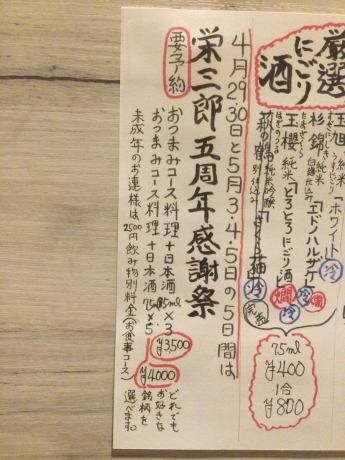 厳選
にごり
酒
玉旭 純米「ホワイト
杉錦 純米
エドノハルザケ
玉櫻 純米「とろとろにごり酒」
冷
燗
冷
冷
75ml
¥400
1合
¥800
4月29.30日と5月3.4.5日の5日間は
栄三郎 五周年感謝祭
要予約
おつまみコース料理+日本酒75ml×3
¥3,500
おつまみコース料理+日本酒75ml×5
¥4000
どれでも
お好きな
銘柄を
選べます。
未成年のお連様は2500円 飲み物別料金(お食事コース)